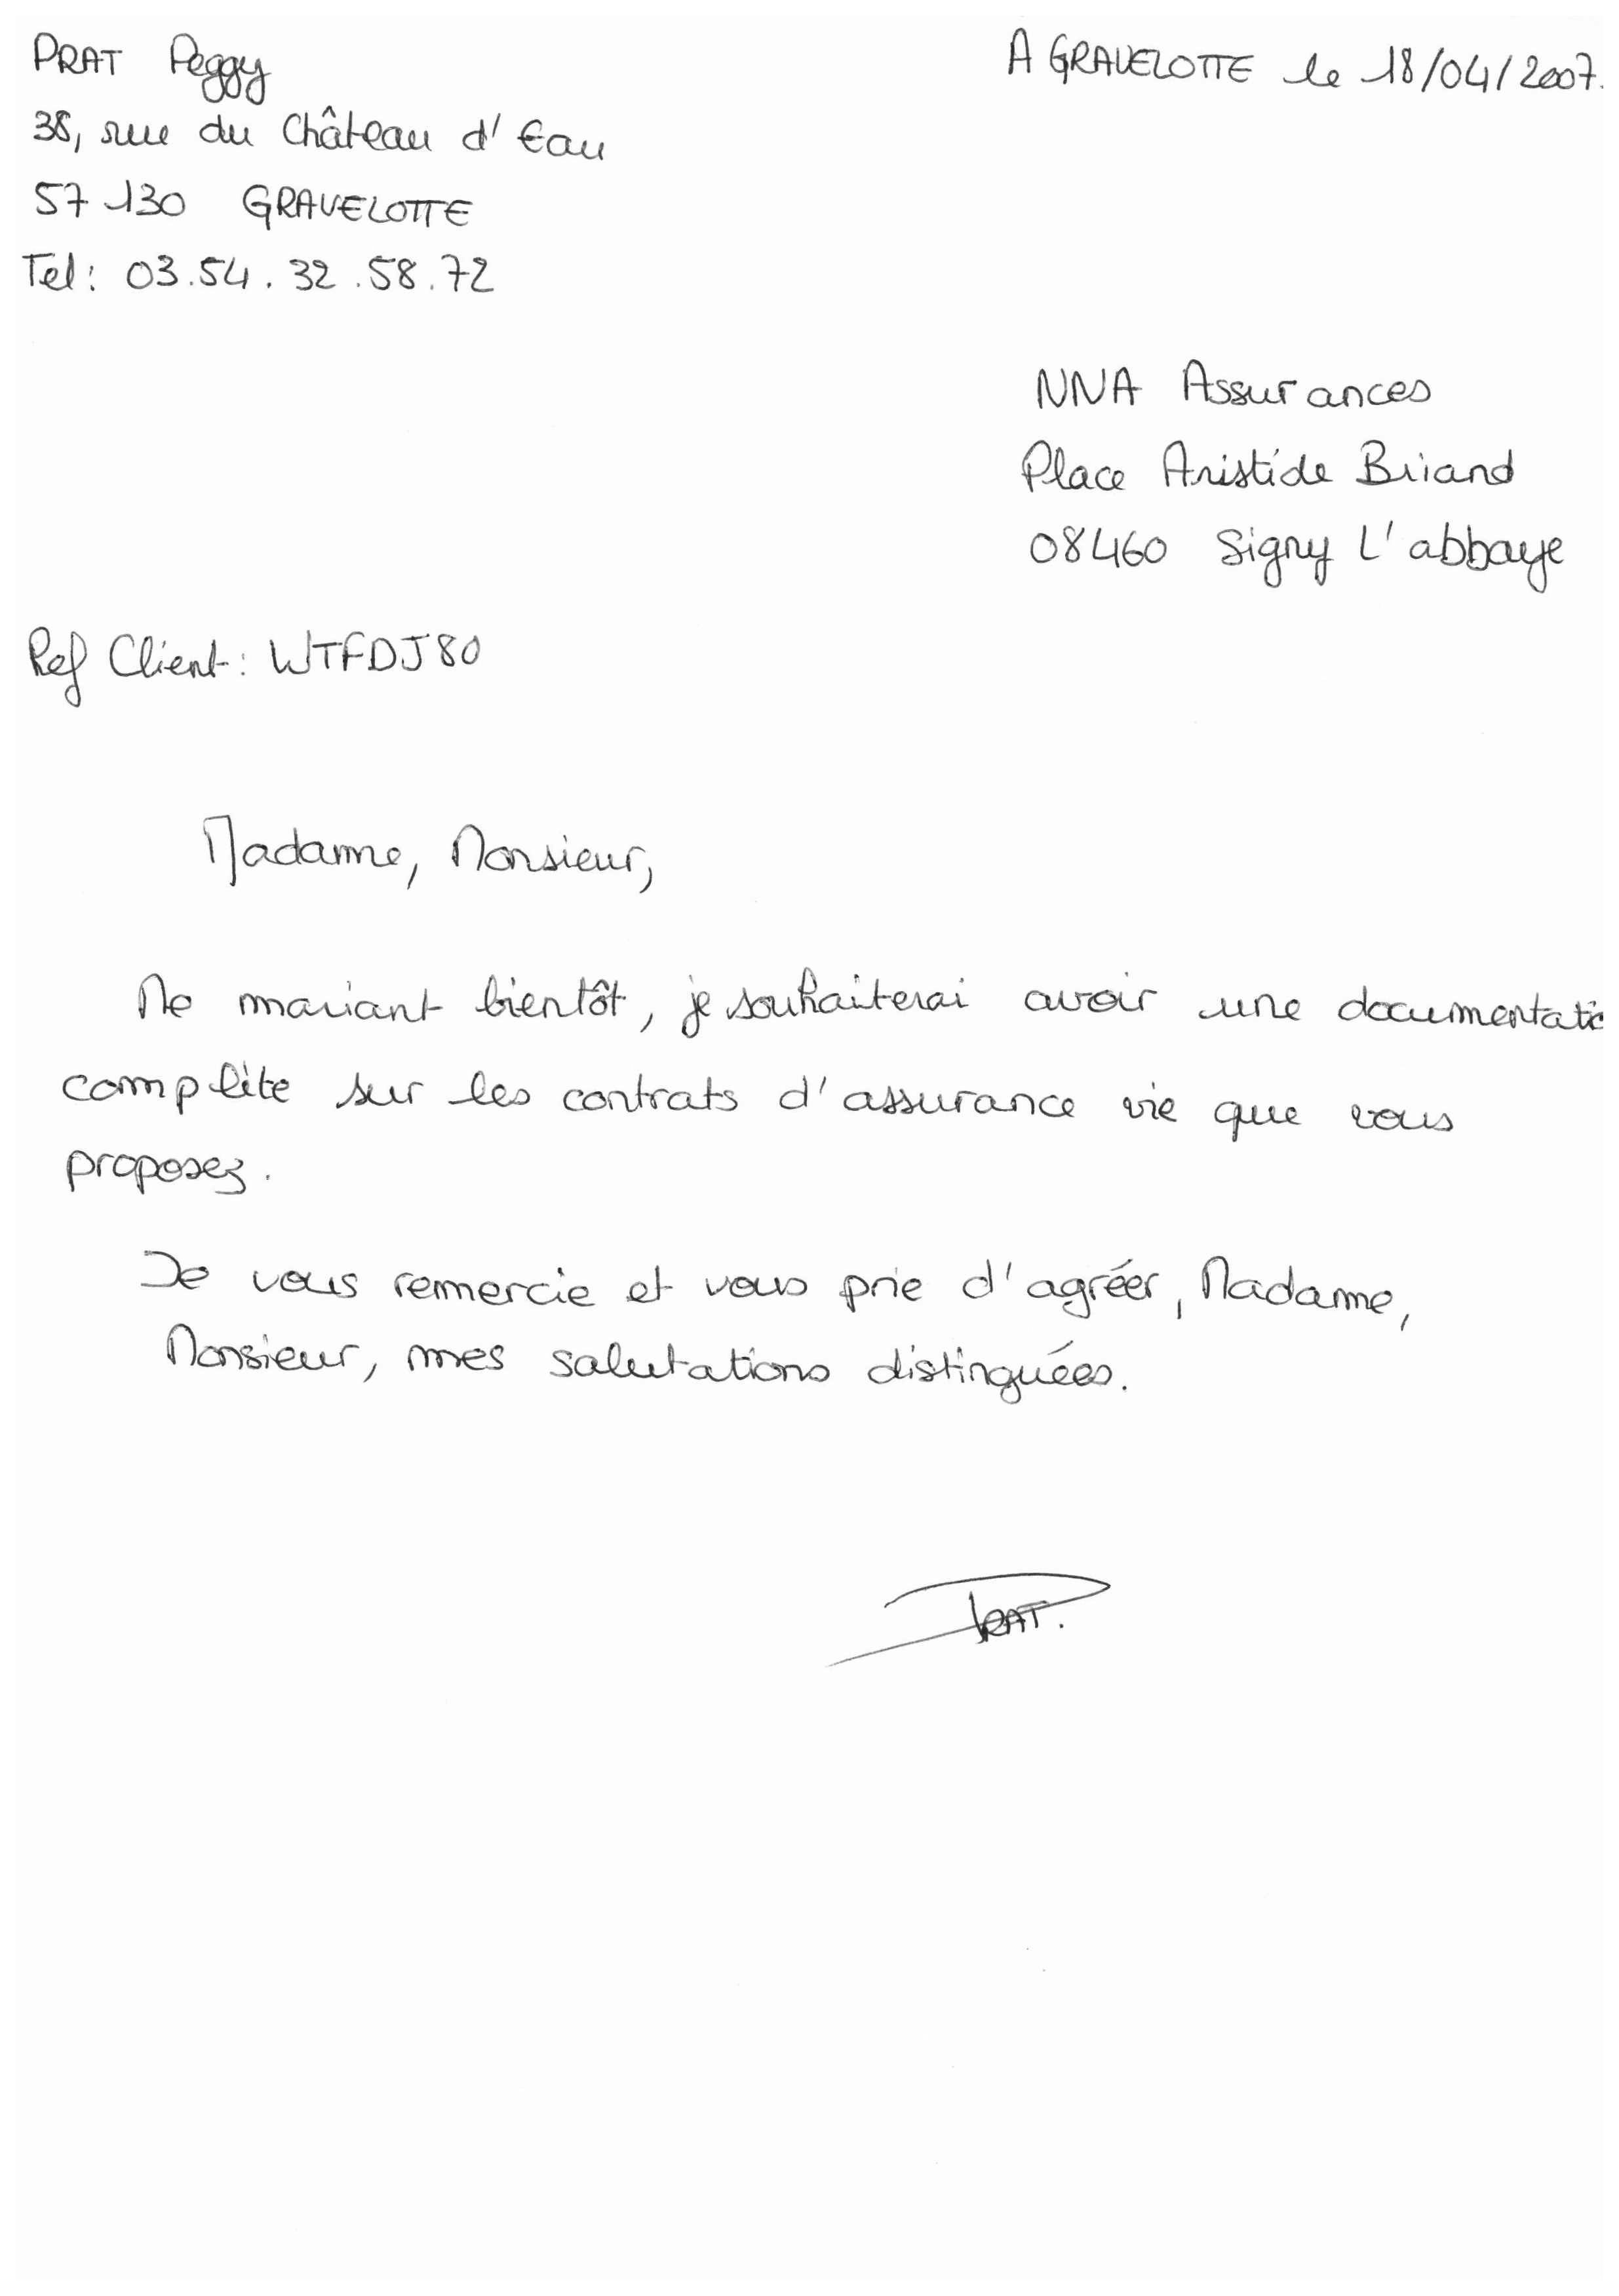 PRAT Peggy
A GRAVELOTTE le 18/04/2007.
38, rue du Château d'Eau
57130 GRAVELOTTE
Tel: 03.54.32.58.72
NNA Assurances
Place Aristide Briand
08460 Signy L'abbaye
Ref Client: WTFDJ80
Madame, Monsieur,
Me mariant bientôt, je souhaiterai avoir une documentatio
complète sur les contrats d'assurance vie que vous
proposez.
Je vous remercie et vous prie d'agréer, Madame,
Monsieur, mes salutations distinguées.
PRAT.